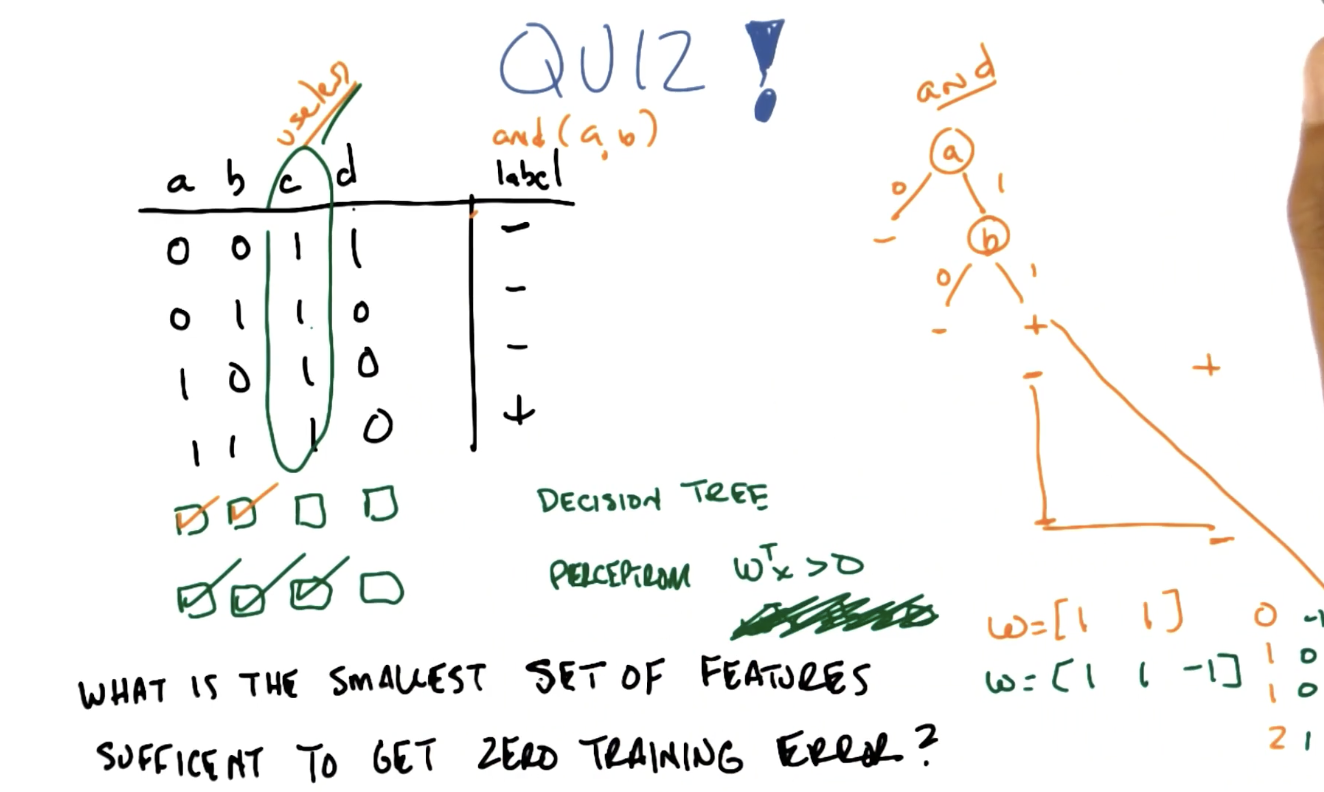 QUIZ!
useless
and(a,b)
a b c d label
0 0 1 1 -
0 1 1 0 -
1 0 1 0 -
1 1 1 0 +
DECISION TREE
PERCEPTRON wᵀx >0
WHAT IS THE SMALLEST SET OF FEATURES
SUFFICENT TO GET ZERO TRAINING ERROR?
and
a
0 1
- b
0 1
- +
- +
+ -
w=[1 1] 0 -1
1 0
w=[1 1 -1] 1 0
2 1